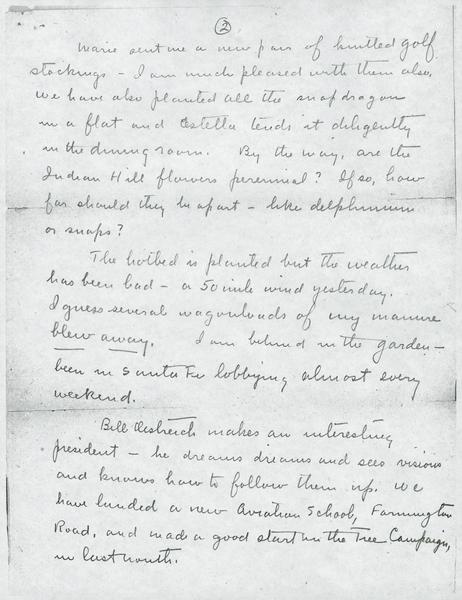 2
Marie sent me a new pair of knitted golf
stockings – I am much pleased with them also.
We have also planted all the snapdragon
in a flat and Estella tends it diligently
in the dining room. By the way, are the
Indian Hill flowers perennial? If so, how
far should they be apart – like delphinium
or snaps?
The hotbed is planted but the weather
has been bad – a 50 mile wind yesterday.
I guess several wagonloads of my manure
blew away. I am behind in the garden –
been in Santa Fe lobbying almost every
weekend.
Bill makes an interesting
president – he dreams dreams and sees visions
and knows how to follow them up. We
have landed a new Aviation School, Farmington
Road, and made a good start in the Tree Campaign,
in last month.